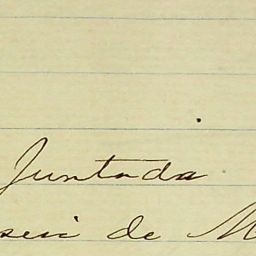 Juntada
seis de M